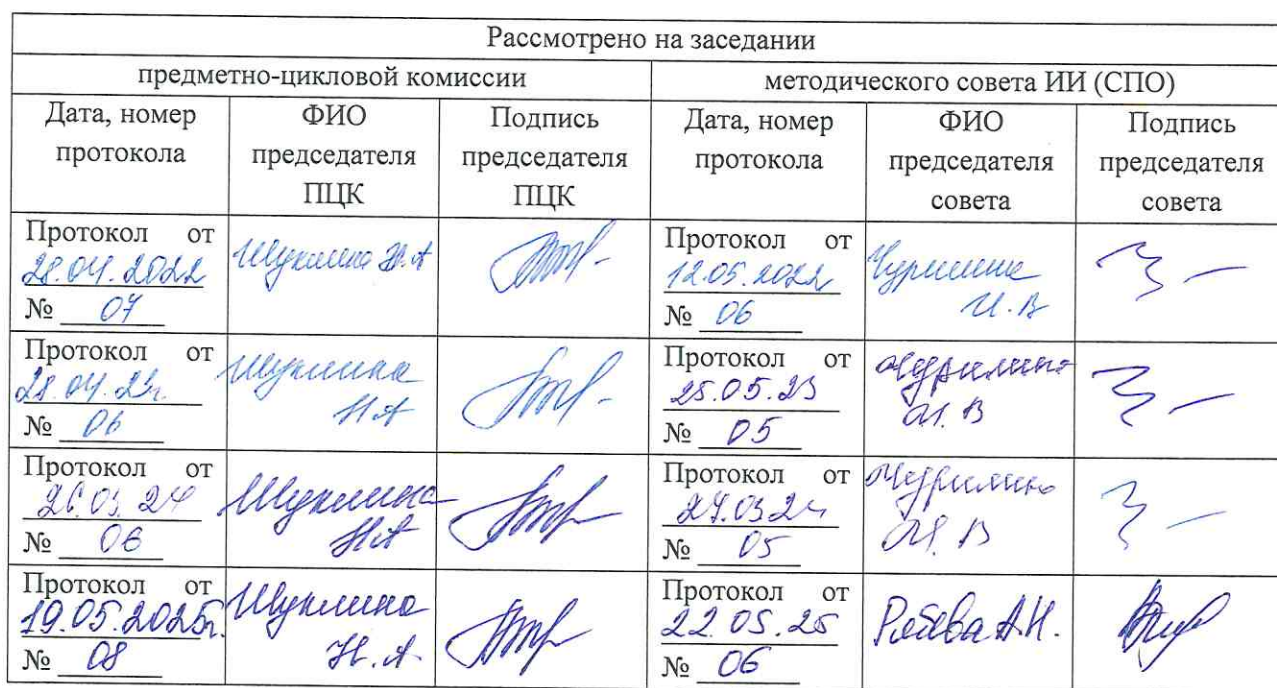 Рассмотрено на заседании
предметно-цикловой комиссии
методического совета ИИ (СПО)
Дата, номер протокола
ФИО председателя ПЦК
Подпись председателя ПЦК
Дата, номер протокола
ФИО председателя совета
Подпись председателя совета
Протокол от
28.04.2022
№ 07
Шуклина Н.А
Протокол от
12.05.2022
№ 06
Чурилина
И.В
Протокол от
№ 06
Шуклина
Н.А
Протокол от
25.05.23
№ 05
Чурилина
И.В
Протокол от
26.03.24
№ 06
Шуклина
Н.А
Протокол от
27.03.24
№ 05
Чурилина
И.В
Протокол от
19.05.2025г.
№ 08
Шуклина
Н.А.
Протокол от
22.05.25
№ 06
А.Н.